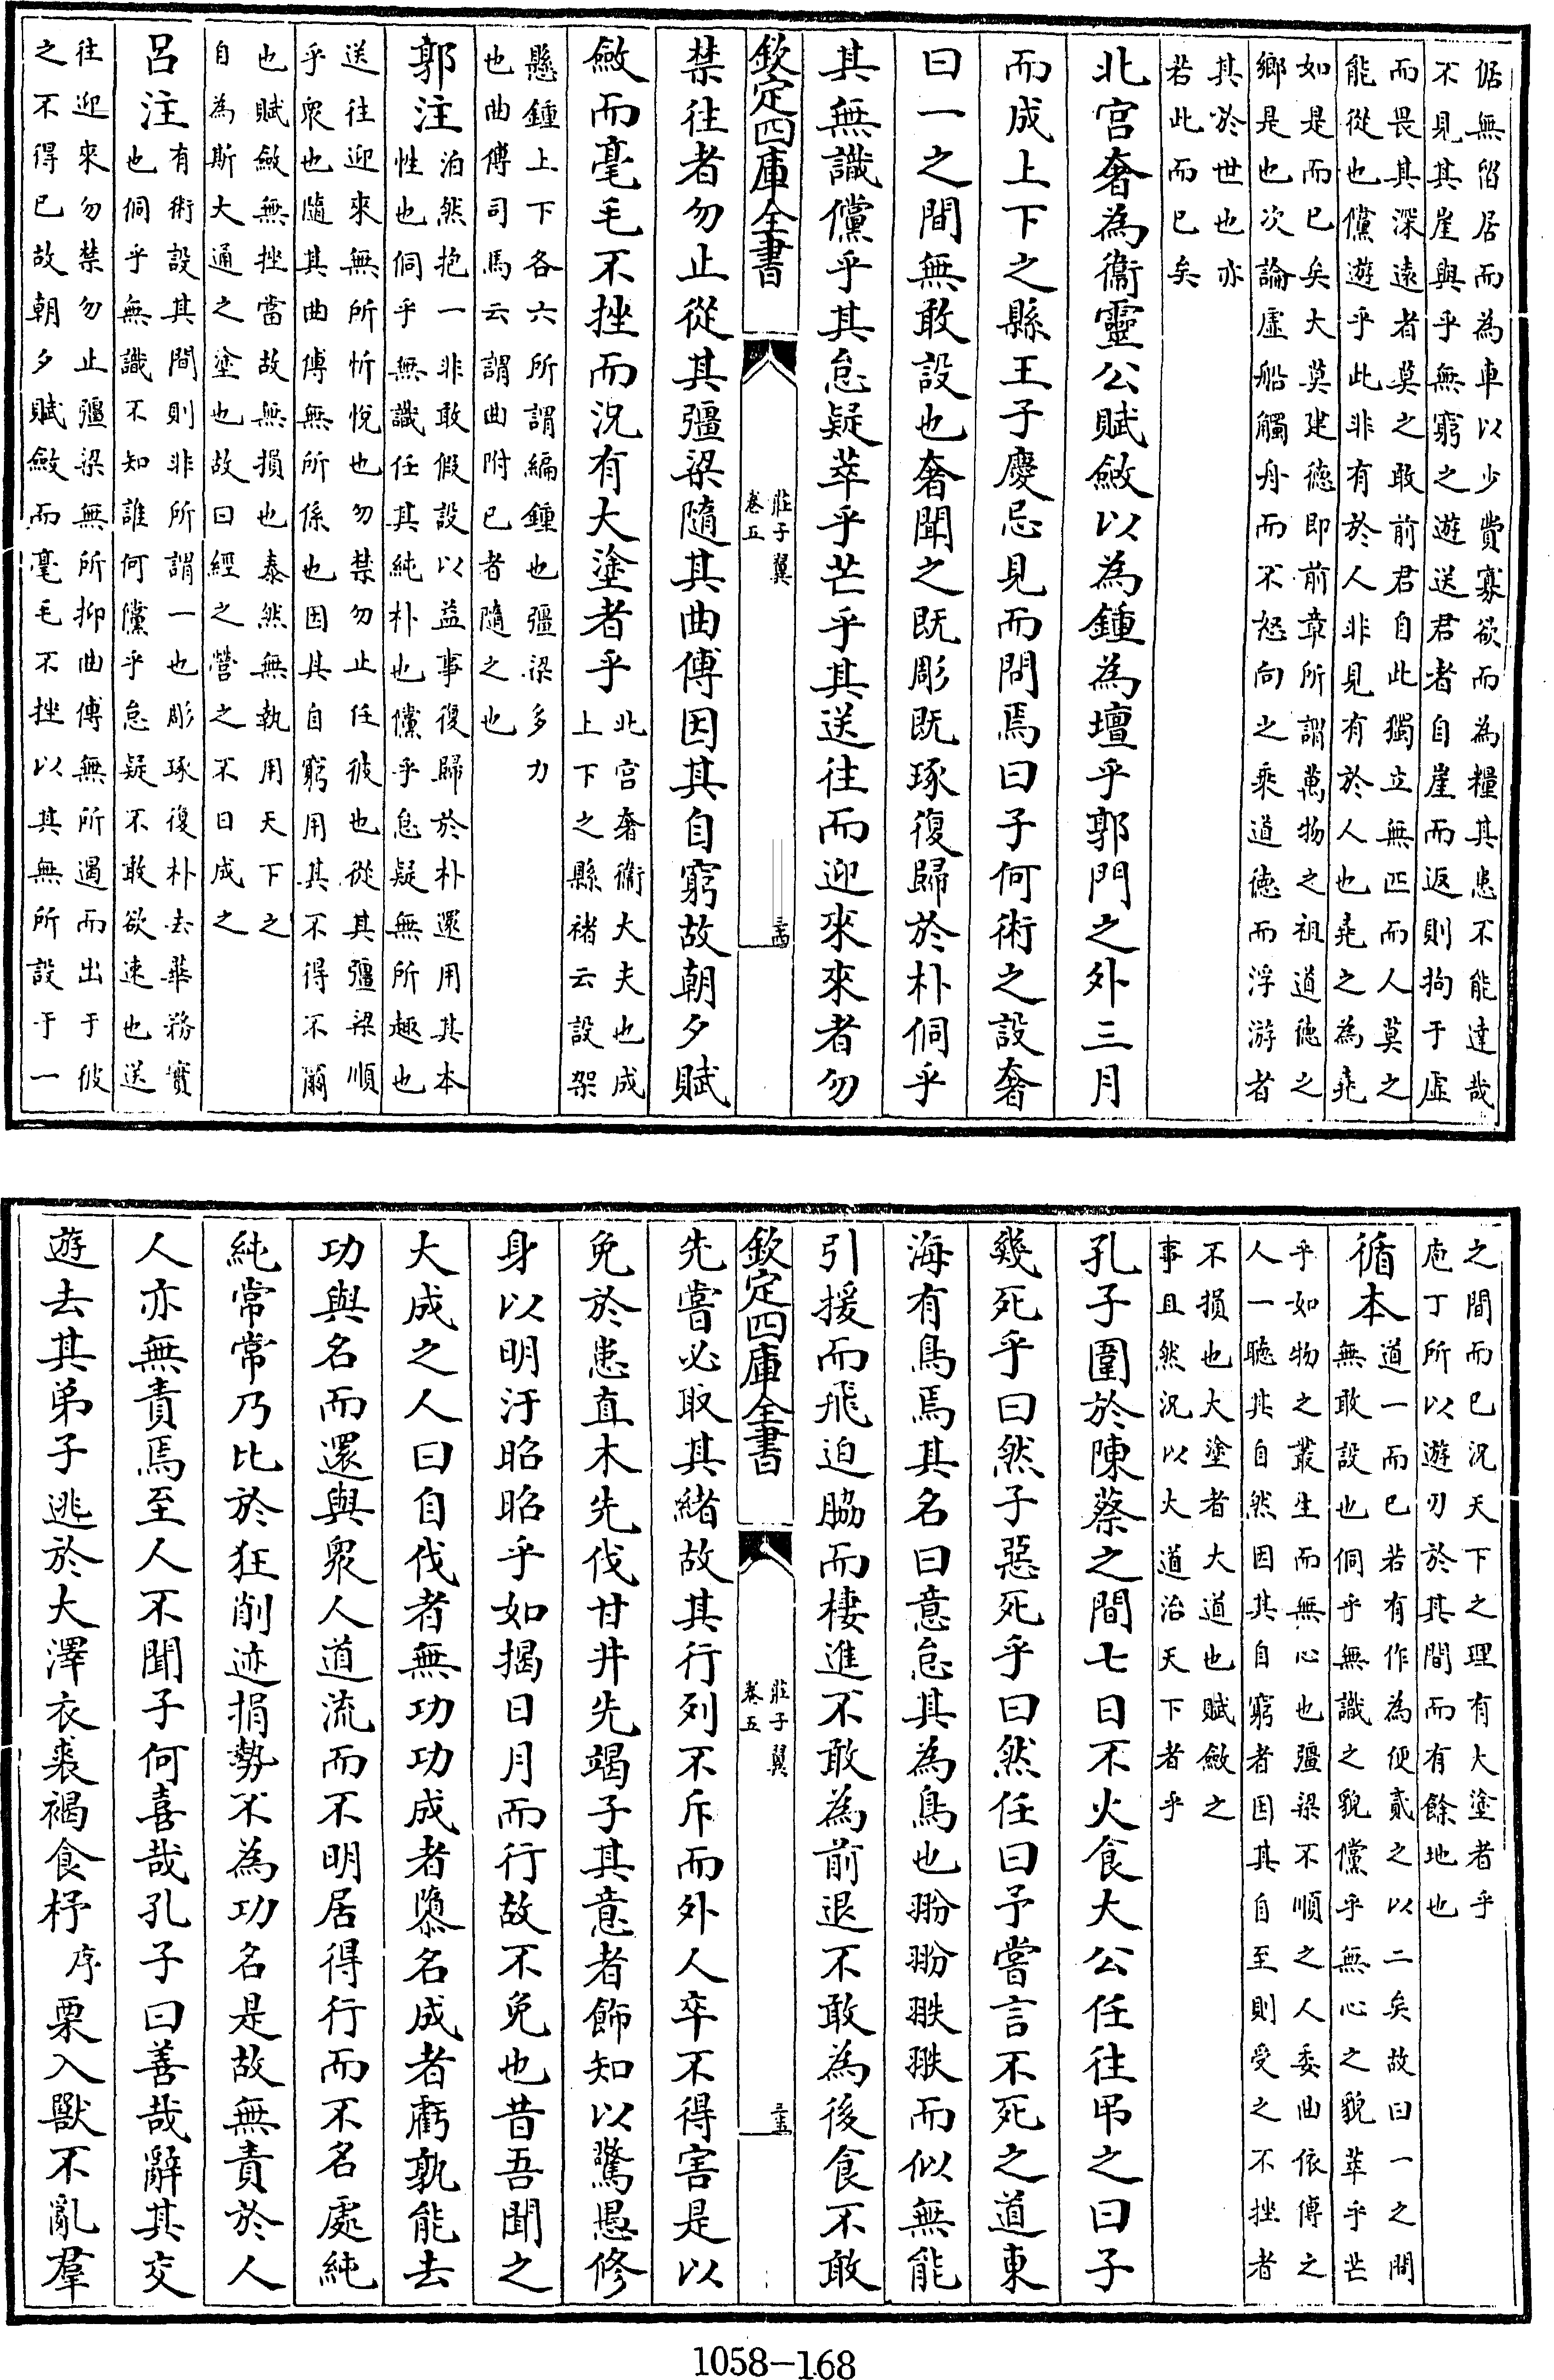 倨無留居而為車以少費寡欲而為糧其患不能達哉
不見其崖與乎無窮之遊送君者自崖而返則拘于虛
而畏其深遠者莫之敢前君自此獨立無匹而人莫之
能從也儻遊乎此非有於人非見有於人也堯之為堯
如是而已矣大莫建德即前章所謂萬物之祖道徳之
鄉是也次論虛船觸舟而不怒向之乘道徳而浮游者
其於世也亦
若此而已矣
北宮奢為衞靈公賦斂以為鍾為壇乎郭門之外三月
而成上下之縣王子慶忌見而問焉曰子何術之設奢
曰一之間無敢設也奢聞之既彫既琢復歸於朴侗乎
其無識儻乎其怠疑萃乎芒乎其送往而迎來來者勿
欽定四庫全書
莊子翼
卷五
三十四
禁往者勿止從其彊梁隨其曲傅因其自窮故朝夕賦
斂而毫毛不挫而況有大塗者乎
北宮奢衞大夫也成
上下之縣禇云設架
懸鍾上下各六所謂編鍾也彊梁多力
也曲傅司馬云謂曲附已者隨之也
郭注
泊然抱一非敢假設以益事復歸於朴還用其本
性也侗乎無識任其純朴也儻乎怠疑無所趣也
送往迎來無所忻悅也勿禁勿止任彼也從其彊梁順
乎衆也隨其曲傅無所係也因其自窮用其不得不爾
也賦斂無挫當故無損也泰然無執用天下之
自為斯大通之塗也故曰經之營之不日成之
呂注
有術設其間則非所謂一也彫琢復朴去華務實
也侗乎無識不知誰何儻乎怠疑不敢欲速也送
往迎來勿禁勿止彊梁無所抑曲傅無所遏而出于彼
之不得已故朝夕賦斂而毫毛不挫以其無所設于一
之間而已況天下之理有大塗者乎
庖丁所以遊刃於其間而有餘地也
循本
道一而已若有作為便貳之以二矣故曰一之間
無敢設也侗乎無識之貌儻乎無心之貌萃乎芒
乎如物之叢生而無心也彊梁不順之人委曲依傅之
人一聽其自然因其自窮者因其自至則受之不挫者
不損也大塗者大道也賦斂之
事且然況以大道治天下者乎
孔子圍於陳蔡之間七日不火食大公任往弔之曰子
幾死乎曰然子惡死乎曰然任曰予嘗言不死之道東
海有鳥焉其名曰意怠其為鳥也翂翂翐翐而似無能
引援而飛迫脇而棲進不敢為前退不敢為後食不敢
欽定四庫全書
莊子翼
卷五
三十五
先嘗必取其緒故其行列不斥而外人卒不得害是以
免於患直木先伐甘井先竭子其意者飾知以驚愚修
身以明汙昭昭乎如揭日月而行故不免也昔吾聞之
大成之人曰自伐者無功功成者隳名成者虧孰能去
功與名而還與衆人道流而不明居得行而不名處純
純常常乃比於狂削迹捐勢不為功名是故無責於人
人亦無責焉至人不聞子何喜哉孔子曰善哉辭其交
遊去其弟子逃於大澤衣裘褐食杼序栗入獸不亂羣
1058-168